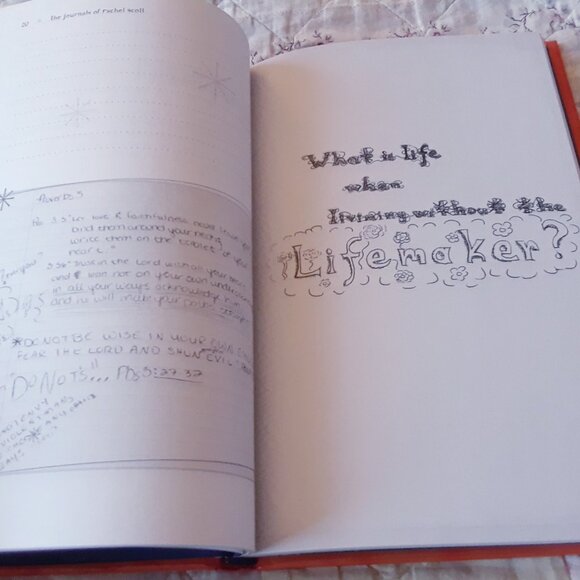 20 The Journals of Rachel Scott
Proverbs
3:3 "Let love & faithfulness never leave you
bind them around your neck,
write them on the tablet of your
heart."
3:5-6 trust in the Lord with all your
and lean not on your own understanding
in all your ways acknowledge him
and he will make your paths
*DO NOT BE WISE IN YOUR OWN
FEAR THE LORD AND SHUN EVIL
"DO NOTS"...
ENVY
What is life
when
living without the
Lifemaker?